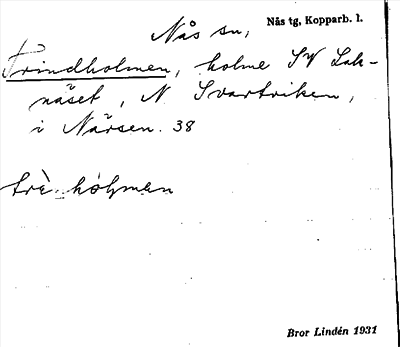 Nås sn, Nås tg, Kopparb. l.
Trindholmen, holme SV Lak-
näset, N. Svartviken,
i Närsen. 38
trè holman
Bror Lindén 1931